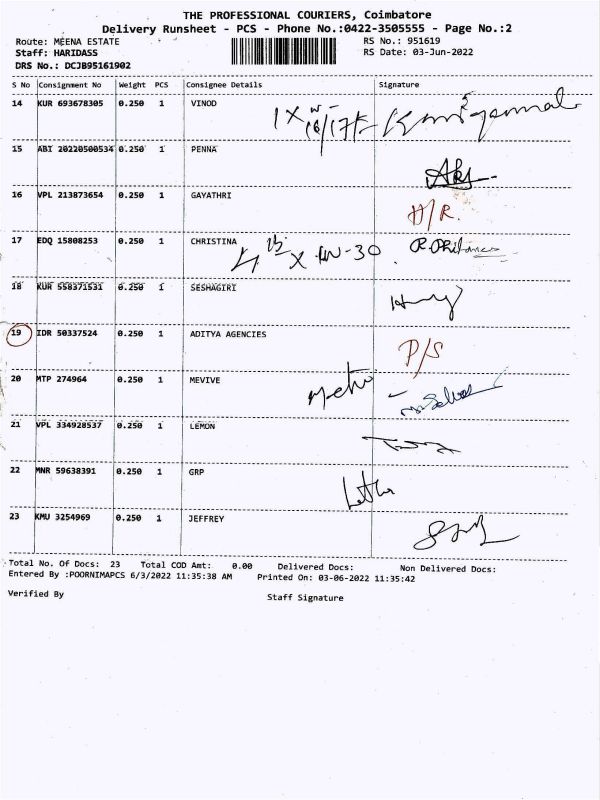 THE PROFESSIONAL COURIERS, Coimbatore
Delivery Runsheet - PCS - Phone No.:0422-3505555 - Page No.:2
Route: MEENA ESTATE RS No.: 951619
Staff: HARIDASS RS Date: 03-Jun-2022
DRS No.: DCJB95161902
S No Consignment No Weight PCS Consignee Details Signature
14 KUR 693678305 0.250 1 VINOD
15 ABI 20220500534 0.250 1 PENNA
16 VPL 213873654 0.250 1 GAYATHRI
D/R.
17 EDQ 15808253 0.250 1 CHRISTINA
18 KUR 558371531 0.250 1 SESHAGIRI
19 IDR 50337524 0.250 1 ADITYA AGENCIES
P/S
20 MTP 274964 0.250 1 MEVIVE
21 VPL 334928537 0.250 1 LEMON
22 MNR 59638391 0.250 1 GRP
Latha
23 KMU 3254969 0.250 1 JEFFREY
Total No. Of Docs: 23 Total COD Amt: 0.00 Delivered Docs: Non Delivered Docs:
Entered By :POORNIMAPCS 6/3/2022 11:35:38 AM Printed On: 03-06-2022 11:35:42
Verified By Staff Signature